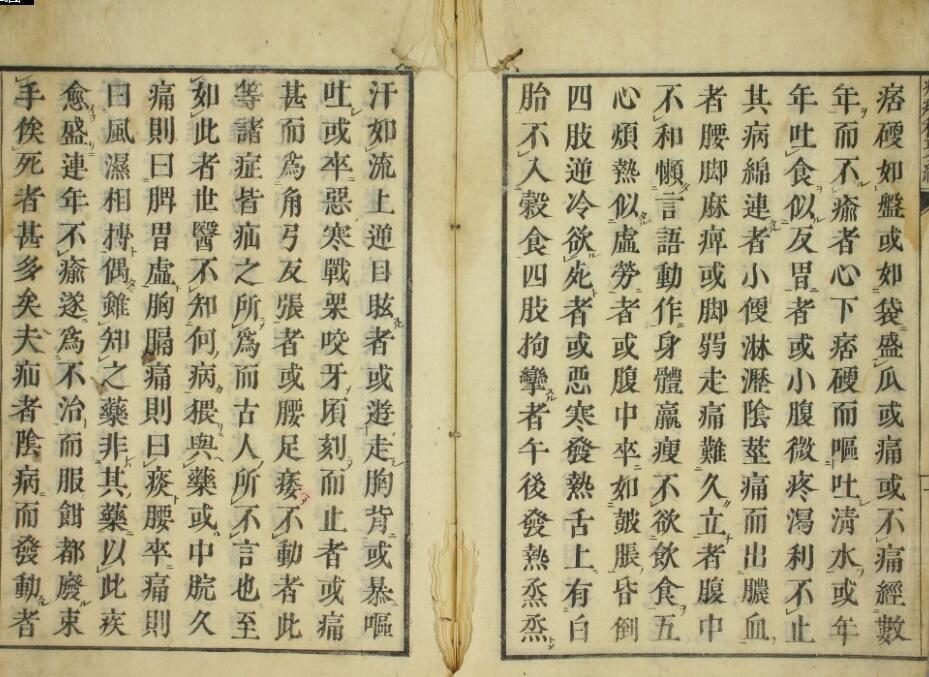 痞硬如盤或如袋盛瓜或痛或不痛經數
年而不瘉者心下痞硬而嘔吐清水或年
年吐食似反胃者或小腹微疼瀉利不止
其病綿連者小便淋瀝陰莖痛而出膿血
者腰脚麻痺或脚弱走痛難久立者腹中
不和懶言語動作身體羸瘦不欲飲食五
心煩熱似虛勞者或腹中卒如皷脹昏倒
四肢逆冷欲死者或惡寒發熱舌上有白
胎不入穀食四肢拘攣者午後發熱烝烝
汗如流上逆目眩者或遊走胸背或暴嘔
吐或卒惡寒戰栗咬牙頃刻而止者或痛
甚而為角弓反張者或腰足痿不動者此
等諸症皆疝之所為而古人所不言也至
如此者世醫不知何病猥與藥或中脘久
痛則曰脾胃虛胸膈痛則曰痰腰卒痛則
曰風濕相摶偶雖知之藥非其藥以此疾
愈盛連年不瘉遂為不治而服餌都廢束
手俟死者甚多矣夫疝者陰病而發動者